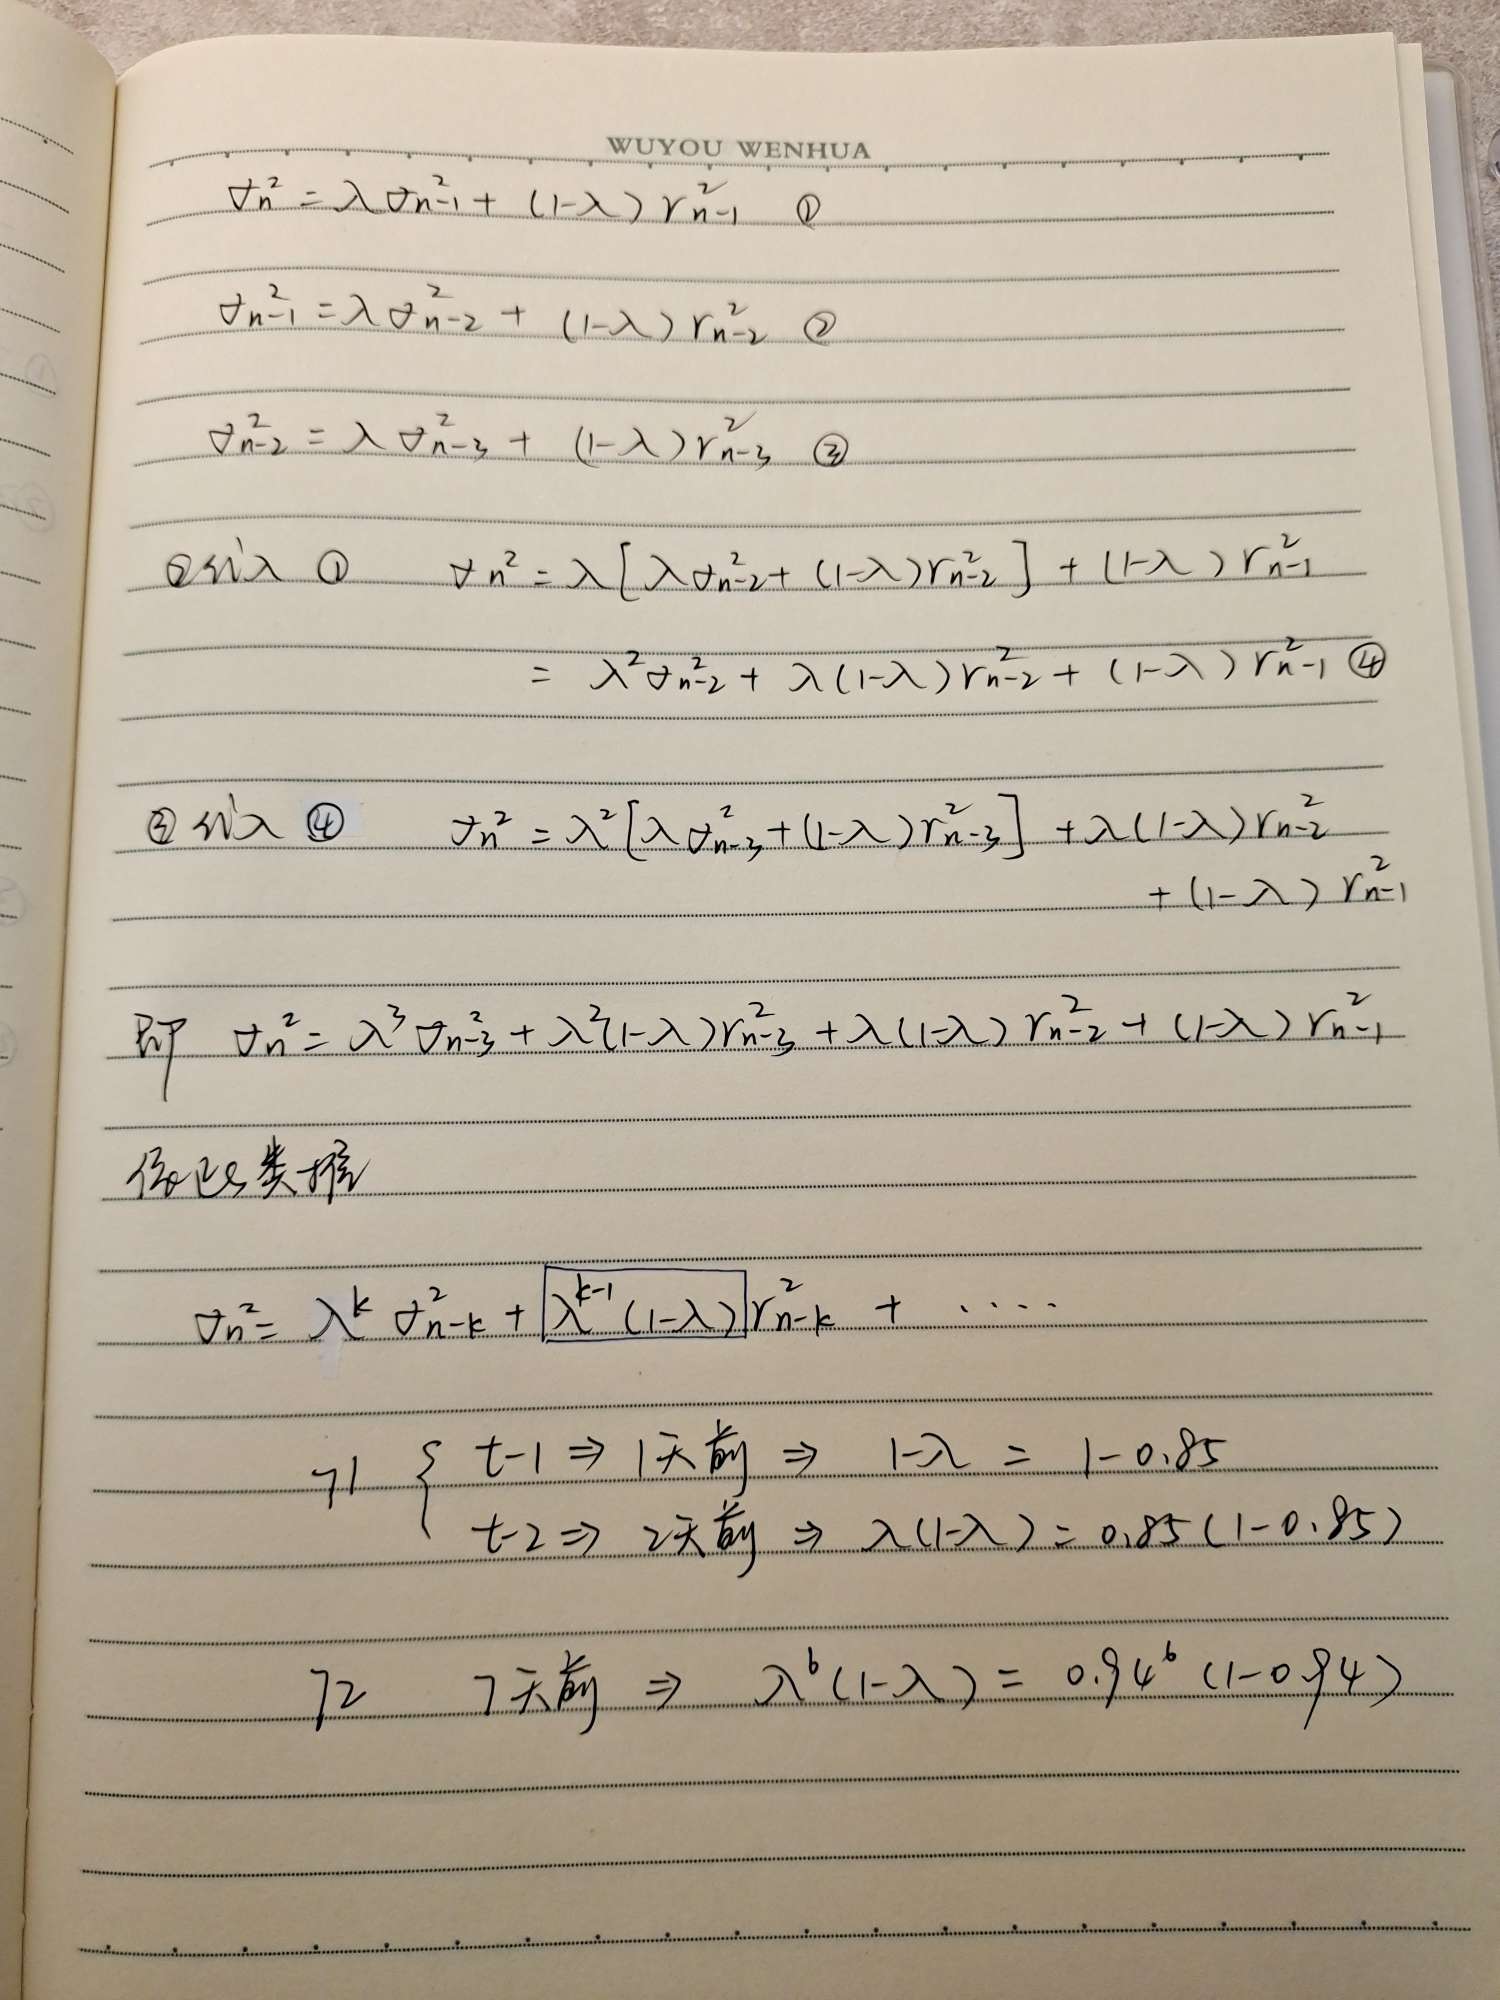 WUYOU WENHUA
σn² = λσn-1² + (1-λ)rn-1² ①
σn-1² = λσn-2² + (1-λ)rn-2² ②
σn-2² = λσn-3² + (1-λ)rn-3² ③
②代入① σn² = λ[λσn-2² + (1-λ)rn-2²] + (1-λ)rn-1²
= λ²σn-2² + λ(1-λ)rn-2² + (1-λ)rn-1² ④
③代入④ σn² = λ²[λσn-3² + (1-λ)rn-3²] + λ(1-λ)rn-2²
+ (1-λ)rn-1²
即 σn² = λ³σn-3² + λ²(1-λ)rn-3² + λ(1-λ)rn-2² + (1-λ)rn-1²
依此类推
σn² = λᵏσn-k² + λᵏ⁻¹(1-λ)rn-k² + ····
71 { t-1 ⇒ 1天前 ⇒ 1-λ = 1-0.85
t-2 ⇒ 2天前 ⇒ λ(1-λ) = 0.85(1-0.85)
72 7天前 ⇒ λ⁶(1-λ) = 0.94⁶(1-0.94)